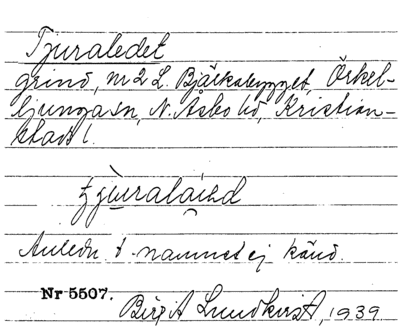 Tjuraledet
grind, nr 2 L. Bjälkabygget, Örkel-
ljunga sn, N. Åsbo hd, Kristian-
stads l.
Anledn. t. namnet ej känd.
Nr 5507.
Birgit Lundkvist, 1939